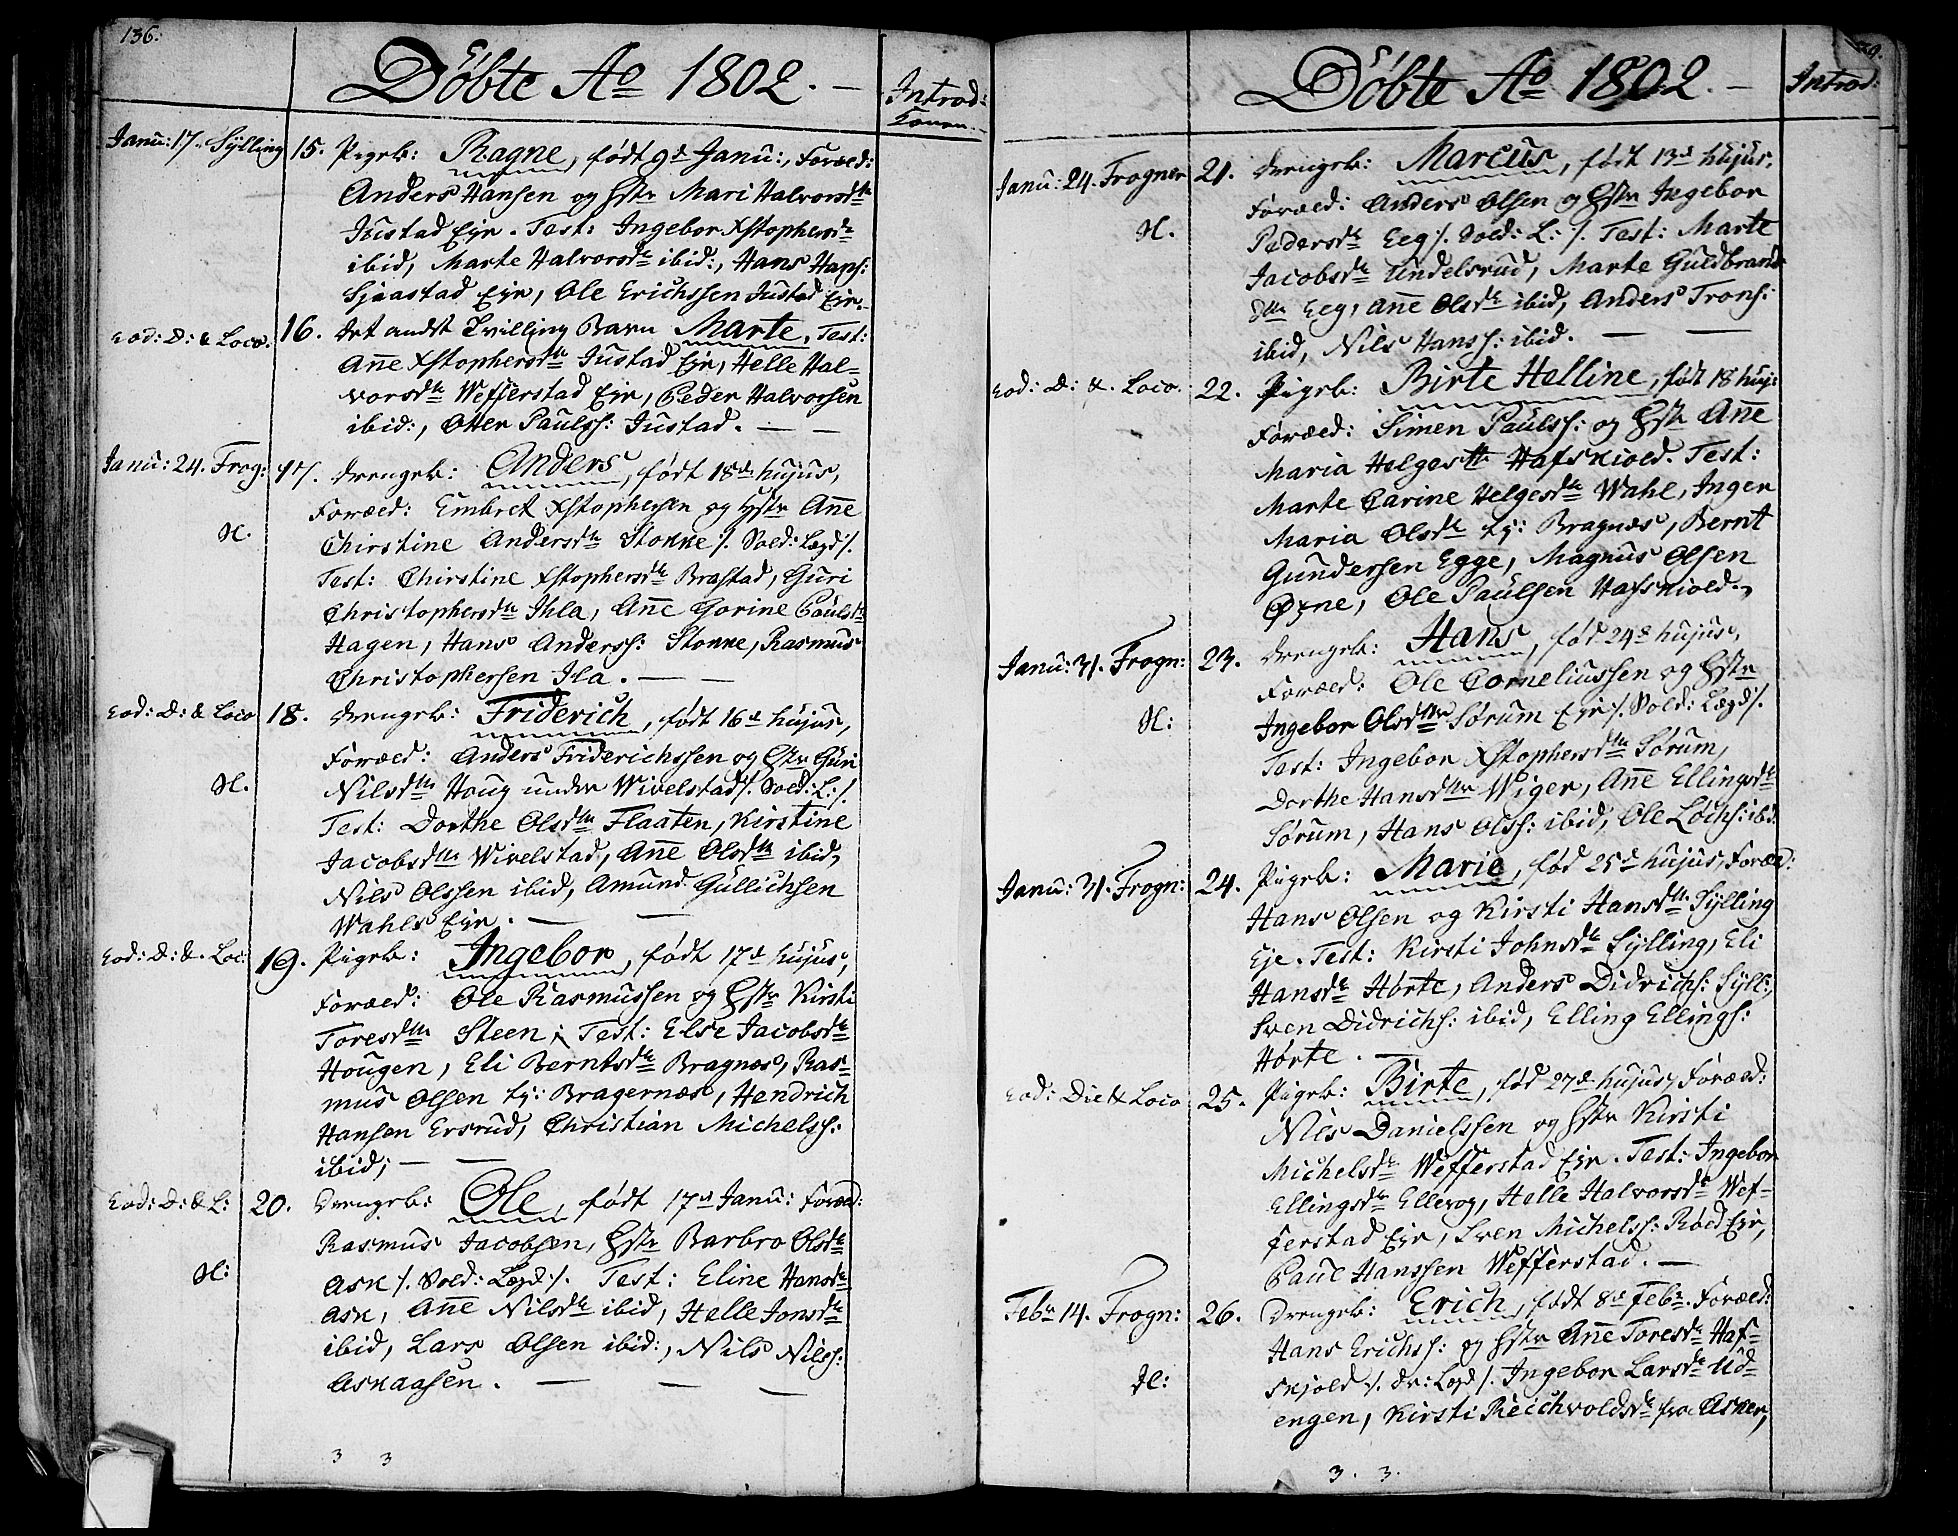 136.
Döbte Ao 1802. —
Introd:
Konen.
Janu: 17. Sylling 15. Pigeb: Ragne, født 9d Janu:, Foræld:
Anders Hansen og Hstr Mari Halvorsdtr
Justad Eje. Test: Ingebor Xstophersdr
ibid, Marte Halvorsdr ibid:, Hans Hans:
Sjaastad Eje, Ole Erichssen Justad Eje.
Eod: D: & Loco. 16. Det andet Tvilling Barn Marte, Test:
Anne Xstophersdtr Justad Eje, Helle Hal-
vorsdtr Wefferstad Eje, Peder Halvorsen
ibid:, Otter Paulss: Justad. — —
Janu: 24. Frog: 17. Drengeb: Anders, født 18d hujus,
Foræld: Embret Xstophersen og Hstr Anne
N. Chirstine Andersdtr Stokke ./. Sold: Lægd ./.
Test: Chirstine Xstophersdtr Brastad, Guri
Christophersdtr Ihla, Anne Gorine Paulsdtr
Hagen, Hans Anderss: Stokke, Rasmus
Christophersen Ila. — —
Eod: D: & Loco 18. Drengeb: Friderich, født 16d hujus,
Foræld: Anders Friderichssen og Hstr Guri
N. Nilsdtr Houg under Wivelstad ./. Sold: L: ./.
Test: Dorthe Olsdtr Flaaten, Kirstine
Jacobsdtr Wivelstad, Anne Olsdtr ibid,
Nils Olssen ibid, Amund Gullichsen
Wahls Eje. — —
Eod: D: & Loc: 19. Pigeb: Ingebor, født 17d hujus,
Foræld: Ole Rasmussen og Hstr Kirsti
Toresdtr Steen; Test: Else Jacobsdr
Hougen, Eli Berntsdr Bragnæs, Ras-
mus Olsen tj: Bragernæs, Hendrich
Hansen Ersrud, Christian Michelss:
ibid; — —
Eod: D: & L: 20. Drengeb: Ole, født 17d Janu: Foræld:
Rasmus Jacobsen, Hstr Barbro Olsdr
N: Ask ./. Sold: Lægd ./. Test: Eline Hansdr
Ask, Anne Nilsdr ibid, Helle Jonsdr
ibid, Lars Olsen ibid:, Nils Nilss:
Askaasen. — — —
3 3
Döbte Ao 1802. —
Introd:
Janu: 24. Frogner 21. Drengeb: Marcus, født 13d hujus.
Foræld: Anders Olsen og Hstr Ingebor
N. Pedersdr Eeg ./. Sold: L: ./. Test: Marte
Jacobsdr Undelsrud, Marte Guldbrands
dtr Eeg, Anne Olsdr ibid, Anders Trons:
ibid, Nils Hanss: ibid. — —
Eod: D: &. Loco. 22. Pigeb: Birte Helline, født 18 huj:
Foræld: Simen Paulss: og Hstr Anne
Maria Helgesdtr Hafskiold. Test:
Marte Carine Helgesdtr Wahl, Inger
Maria Olsdr tj: Bragnæs, Bernt
Gundersen Egge, Magnus Olsen
Øxne, Ole Paulsen Hafskiold.
Janu: 31. Frogn: 23. Drengeb: Hans, fød 24d hujus,
Foræld: Ole Corneliussen og Hstr
N: Ingebor Olsdtr Sørum Eje ./. Sold: Lægd ./.
Test: Ingebor Xstophersdtr Sørum,
Dorthe Hansdtr Wiger, Anne Ellingsdr
Sørum, Hans Olss: ibid, Ole Lochs: ibd.
Janu: 31. Frogn: 24. Pigeb: Marie, fød 25d hujus, Foræld:
Hans Olsen og Kirsti Hansdtr Sylling
Eje. Test: Kirsti Johnsdr Sylling, Eli
Hansdr Hørte, Anders Didrichs: Syll:,
Sven Didrichs: ibid, Elling Ellings:
Hørte. —
Eod: Die & Loco 25. Pigeb: Birte, fød 27d hujus, Foræld:
Nils Danielssen og Hstr Kirsti
Michelsdr Wefferstad Eje. Test: Ingebor
Ellingsdr Ellevog, Helle Halvorsdr Wef-
ferstad Eje, Sven Michelss: Røed Eje,
Paul Hanssen Wefferstad. —
Febr 14. Frogn: 26. Drengeb: Erich, født 8d Febr. Foræld:
Hans Erichss: og Hstr Anne Toresdr Haf-
N: skjold ./. dr: Lægd ./. Ingebor Larsdr Ud-
engen, Kirsti Reichvoldsdr fra Asker,
3. 3.